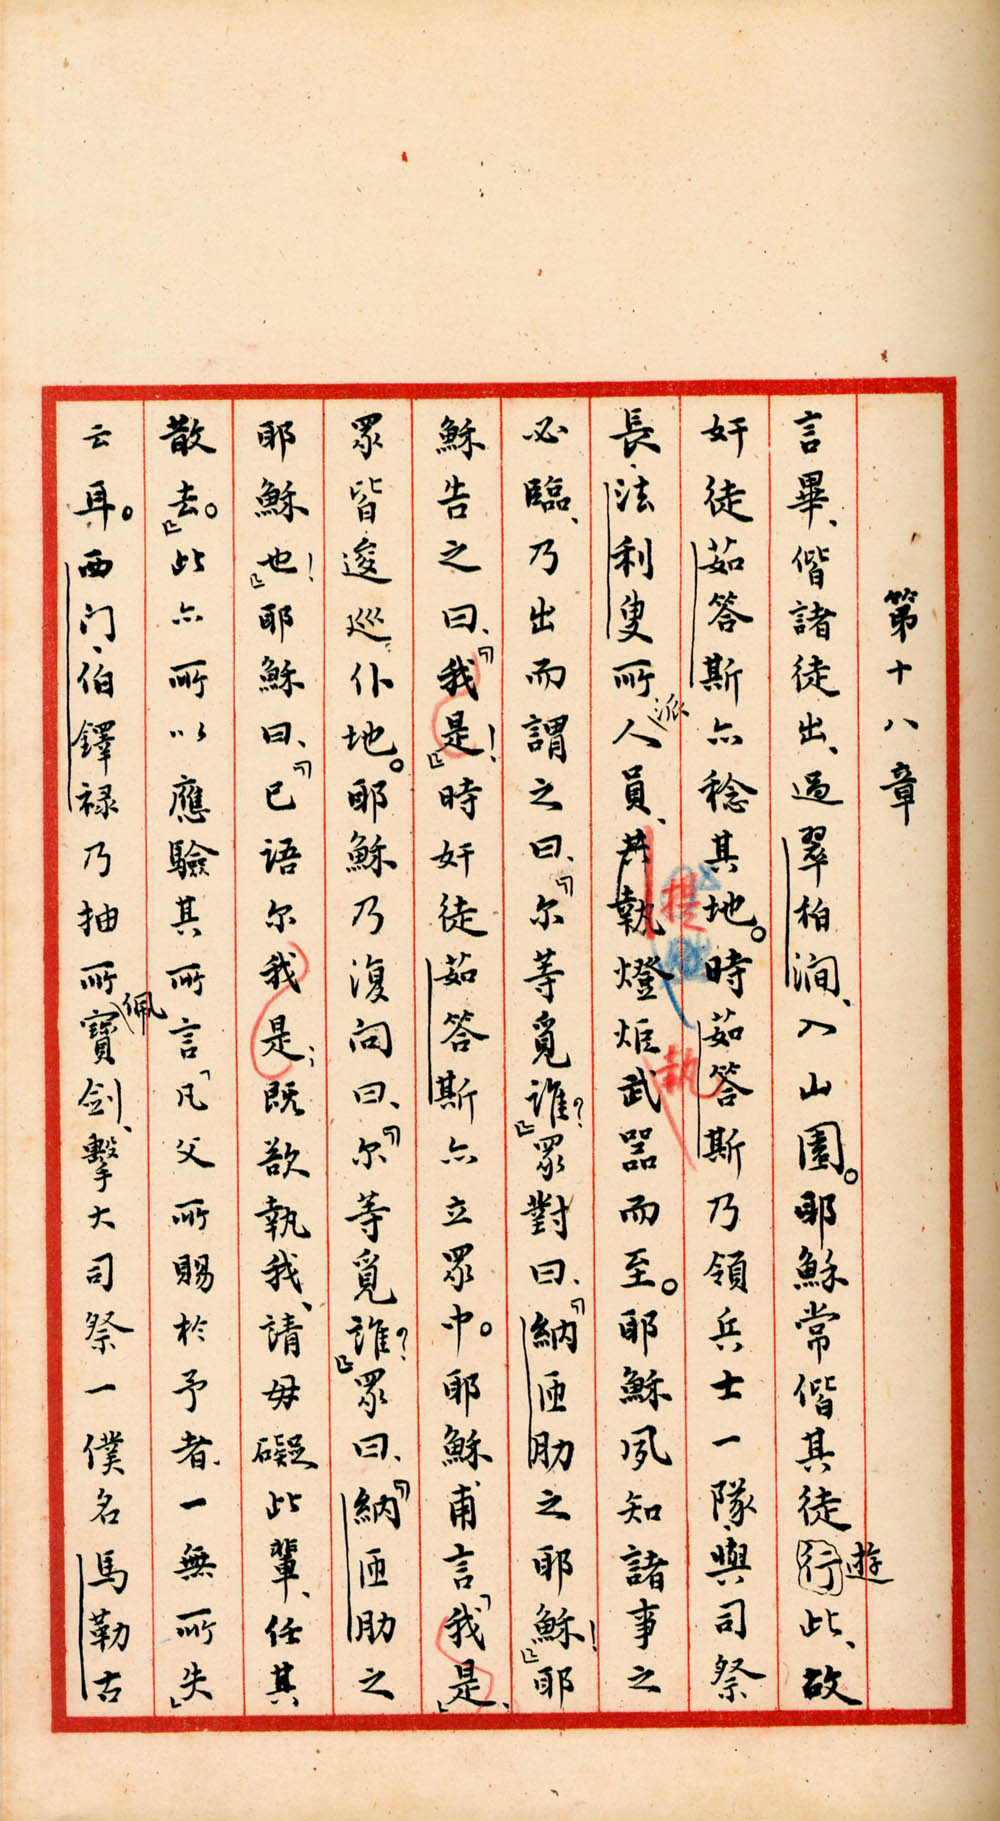 第十八章
言畢、偕諸徒出、過翠柏澗、入山園。耶穌常偕其徒遊此、故
奸徒茹答斯亦稔其地。時茹答斯乃領兵士一隊、與司祭
長、法利叟所派人員、提燈炬執武器而至。耶穌夙知諸事之
必臨、乃出而謂之曰、「尔等覓誰?」眾對曰、「納匝肋之耶穌!」耶
穌告之曰、「我是!」時奸徒茹答斯亦立眾中。耶穌甫言「我是」、
眾皆逡巡仆地。耶穌乃復问曰、「尔等覓誰?」眾曰、「納匝肋之
耶穌也!」耶穌曰、「已语尔我是;既欲執我、請毋礙此輩、任其
散去。」此亦所以應驗其所言「凡父所賜於予者、一無所失」
云耳。西门、伯鐸祿乃抽所佩寶劍、擊大司祭一僕名馬勒古